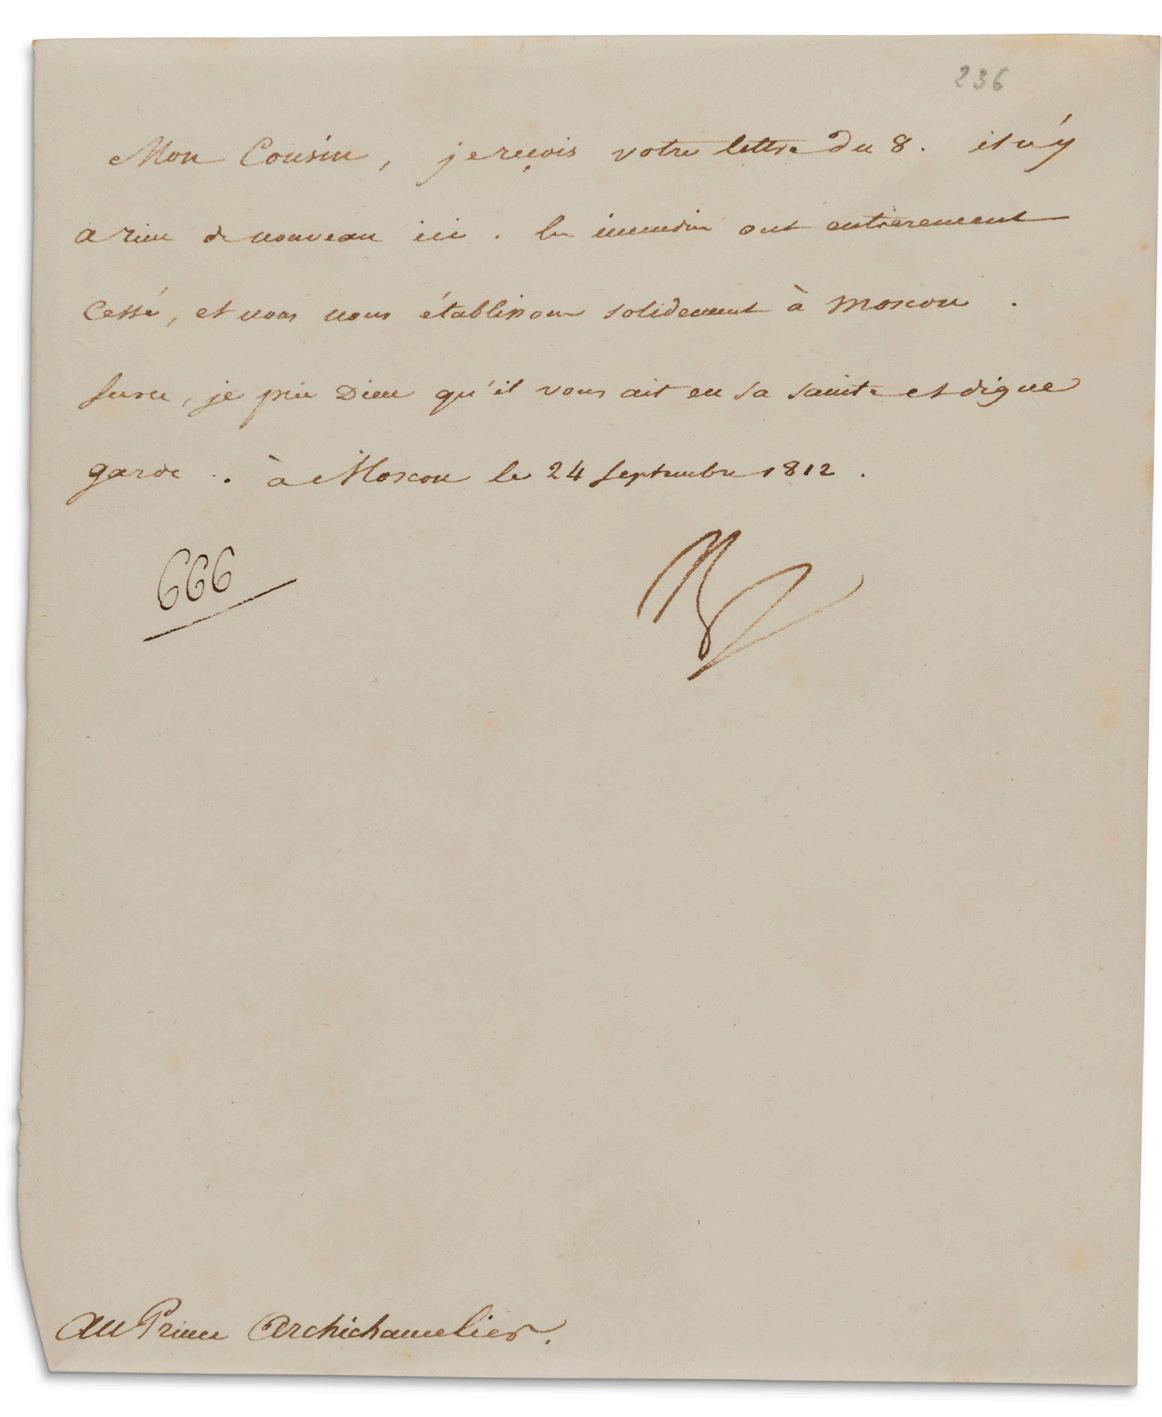 236
Mon Cousin, je reçois votre lettre du 8. il n'y
a rien de nouveau ici. les incendies ont entierement
cessé, et nous nous établissons solidement à Moscou.
sur ce, je prie Dieu qu'il vous ait en sa sainte et digne
garde. à Moscou le 24 septembre 1812.
666
Au Prince Archichancelier.